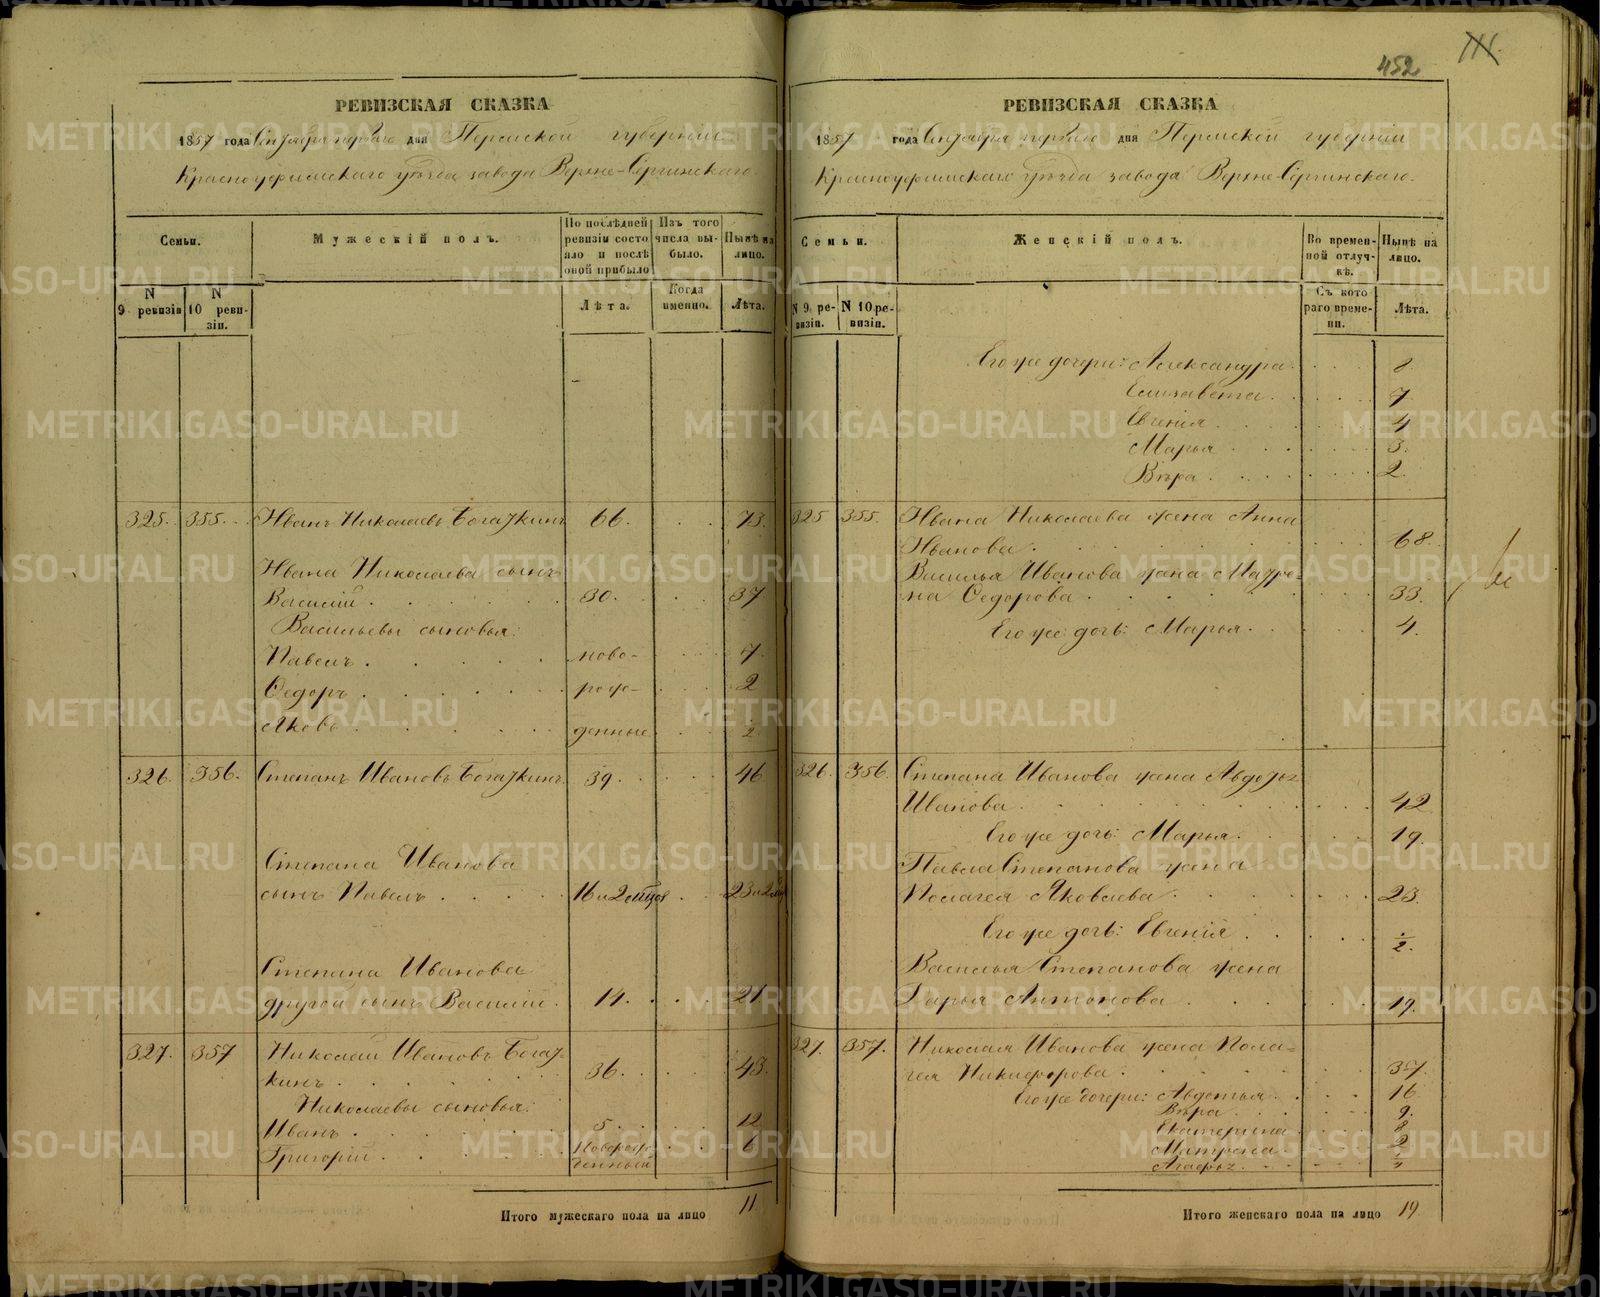 452
РЕВИЗСКАЯ СКАЗКА
1857 года Сентября перваго дня Пермской губернии
Красноуфимскаго уѣзда завода Верхне-Сергинскаго.
Семьи.
Мужескій полъ.
По послѣдней ревизіи состояло и послѣ оной прибыло
Изъ того числа выбыло.
Нынѣ на лицо.
N 9 ревизіи
N 10 ревизіи.
Лѣта.
Когда именно.
Лѣта.
325. 355. Иванъ Николаевъ Богаткинъ 66. 73.
Ивана Николаева сынъ
Василій 30. 37
Васильевы сыновья:
Павелъ ново- 7.
Ѳедоръ рож- 2
Яковъ денные
326. 356. Степанъ Ивановъ Богаткинъ 39. 46
Степана Иванова
сынъ Павелъ 16 и 2 мѣсяц 23 и 2
Степана Иванова
другой сынъ Василій. 14. 21
327. 357 Николай Ивановъ Богат-
кинъ 36. 43.
Николаевы сыновья:
Иванъ 5. 12
Григорій Новорож- 6
денный
Итого мужескаго пола на лицо 11
РЕВИЗСКАЯ СКАЗКА
1857 года Сентября перваго дня Пермской губерніи
Красноуфимскаго уѣзда завода Верхне-Сергинскаго.
Семьи.
Женскій полъ.
Во временной отлучкѣ.
Нынѣ на лицо.
N 9 ревизіи.
N 10 ревизіи.
Съ котораго времени.
Лѣта.
Его же дочери: Александра 8.
Елизавета 7
Евгенія 4
Марья 3.
Вѣра 2.
325 355. Ивана Николаева жена Анна
Иванова 68.
Василья Иванова жена Матре-
на Ѳедорова 33.
Его же дочь: Марья 4.
326. 356. Степана Иванова жена Авдотья
Иванова 42
Его же дочь: Марья. 19.
Павла Степанова жена
Полагея Яковлева 23.
Его же дочь: Евгенія 1/2.
Василья Степанова жена
Дарья Антонова 19.
327. 357. Николая Иванова жена Пола-
гея Никифорова 37.
Его же дочери: Авдотья 16
Вѣра 9.
Екатерина 8
Матрена 2
Агафья
Итого женскаго пола на лицо 19.
METRIKI.GASO-URAL.RU